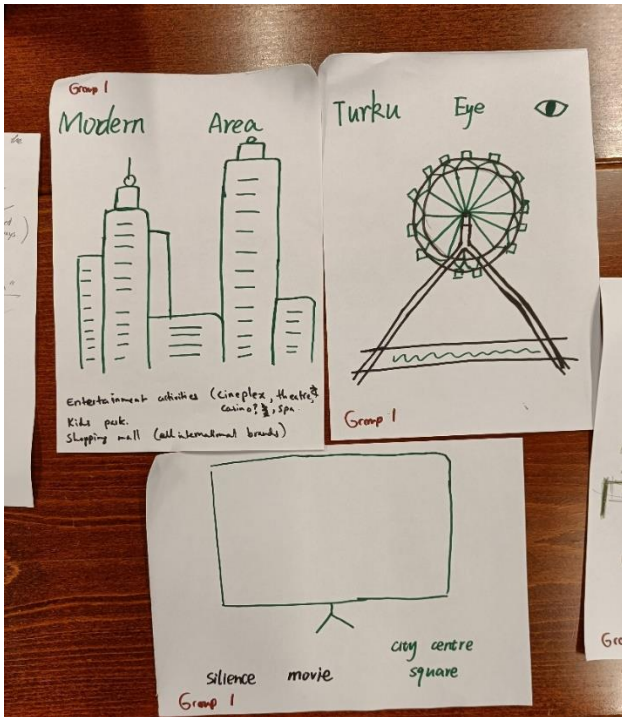 Group 1
Modern Area
Entertainment activities (cineplex, theatre,
casino?, spa
Kids park.
Shopping mall (all international brands)
Turku Eye
Group 1
silience movie
city centre
square
Group 1